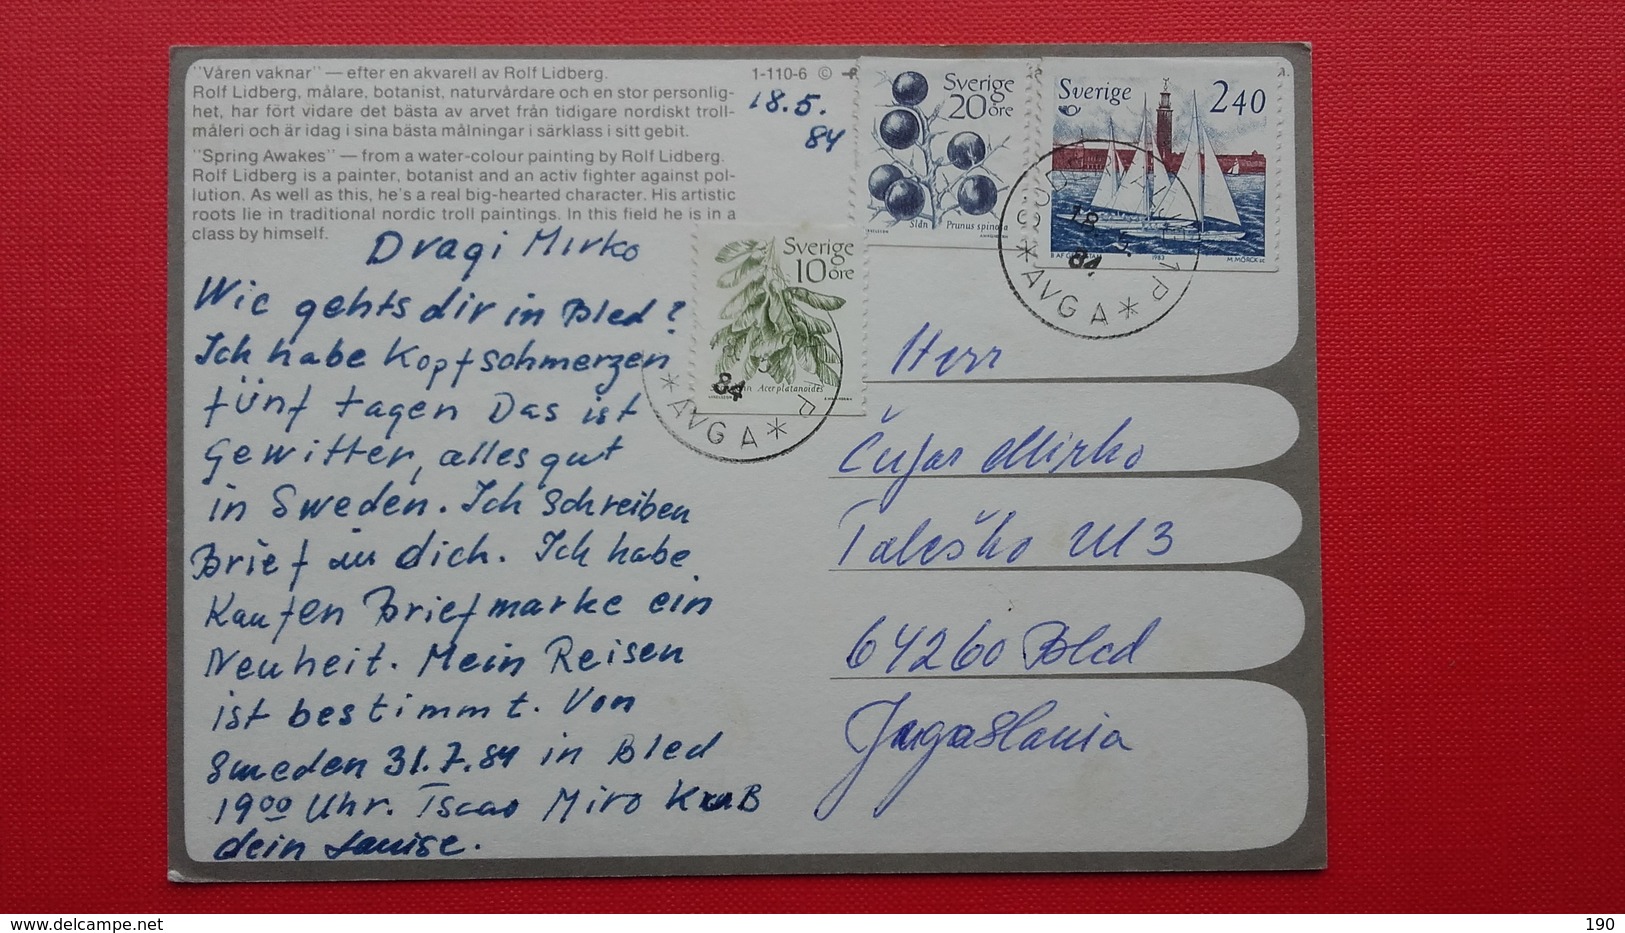 "Våren vaknar" — efter en akvarell av Rolf Lidberg.
Rolf Lidberg, målare, botanist, naturvårdare och en stor personlig-
het, har fört vidare det bästa av arvet från tidigare nordiskt troll-
måleri och är idag i sina bästa målningar i särklass i sitt gebit.
"Spring Awakes" — from a water-colour painting by Rolf Lidberg.
Rolf Lidberg is a painter, botanist and an activ fighter against pol-
lution. As well as this, he's a real big-hearted character. His artistic
roots lie in traditional nordic troll paintings. In this field he is in a
class by himself.
1-110-6 ©
18.5.
84
Dragi Mirko
Wie gehts dir in Bled?
Ich habe Kopfschmerzen
fünf tagen Das ist
Gewitter, alles gut
in Sweden. Ich Schreiben
Brief an dich. Ich habe
Kaufen Briefmarke ein
Neuheit. Mein Reisen
ist bestimmt. Von
Sweden 31.7.84 in Bled
1900 Uhr. Tscao Miro KuB
dein Louise.
Sverige
20 öre
Slån Prunus spinosa
Sverige 2 40
1983 M. MÖRCK sc
Sverige
10 öre
Acer platanoides
18. 5.
84
*AVG A*
84
*AVG A*
Herr
Čufar Mirko
Taleško M3
64260 Bled
Jugoslavia
190